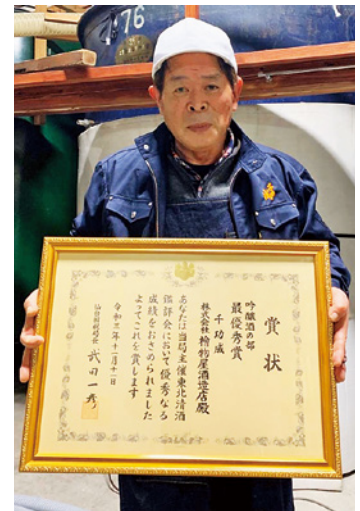 76
賞状
吟醸酒の部
最優秀賞
千功成
株式会社檜物屋酒造店殿
あなたは当局主催東北清酒
鑑評会において優秀なる
成績をおさめられました
よってこれを賞します
令和三年十一月十一日
仙台国税局長 武田一彦